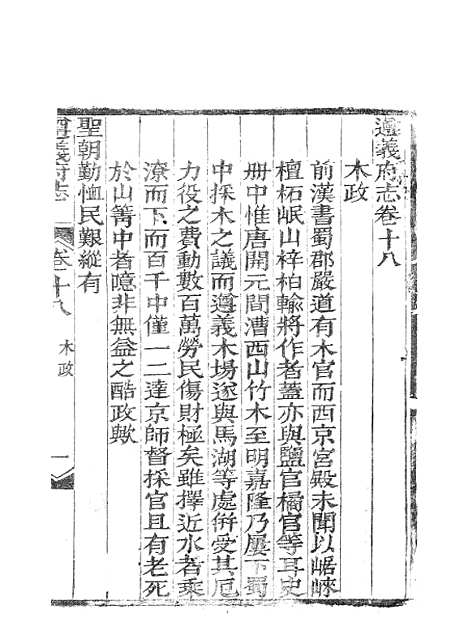 遵義府志卷十八
木政
前漢書蜀郡嚴道有木官而西京宮殿未聞以崌崍
檀柘岷山梓柏輸將作者蓋亦與鹽官橘官等耳史
册中惟唐開元間漕西山竹木至明嘉隆乃屢下蜀
中採木之議而遵義木場遂與馬湖等處併受其厄
力役之費動數百萬勞民傷財極矣雖擇近水者乘
潦而下而百千中僅一二達京師督採官且有老死
於山箐中者噫非無益之酷政歟
聖朝勤恤民艱縱有
遵義府志
卷十八
木政
一